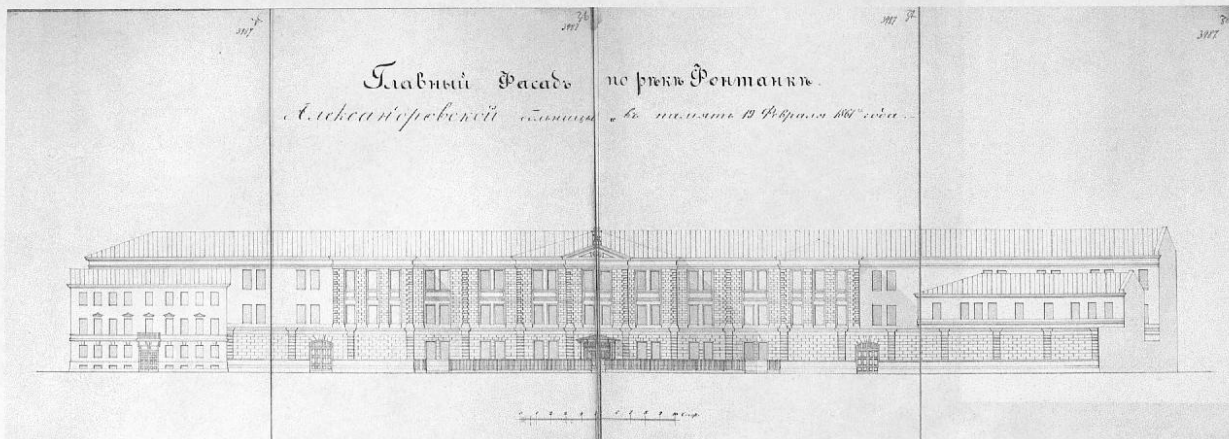 3987
3987
3987
3987
Главный Фасадъ по рѣкѣ Фонтанкѣ.
Александровской больницы „въ память 19 Февраля 1861 года.